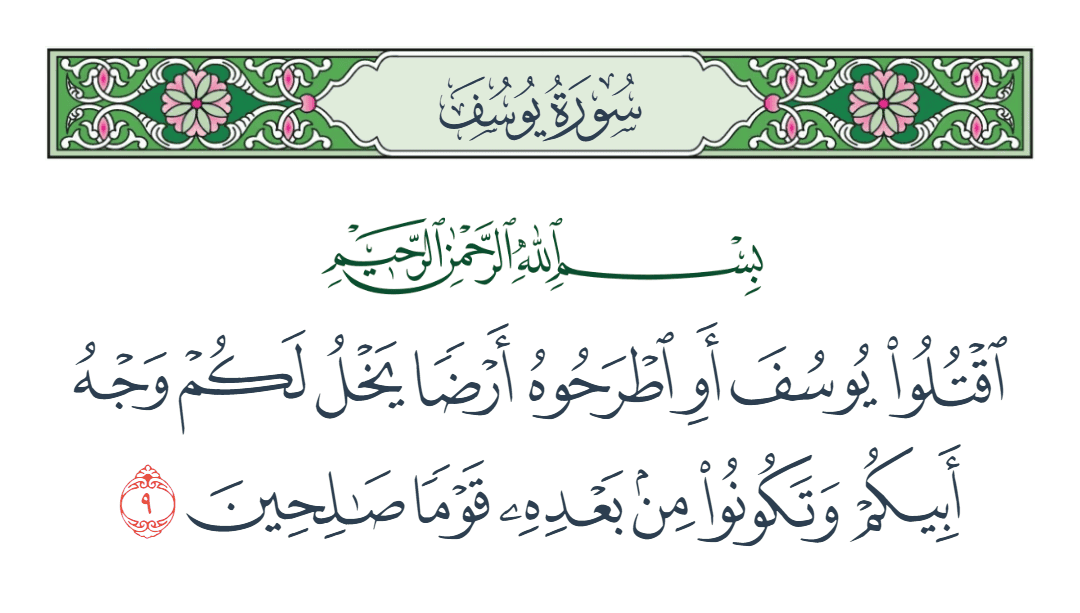 سُورَةُ يُوسُفَ
بِسْمِ ٱللَّهِ ٱلرَّحْمَٰنِ ٱلرَّحِيمِ
ٱقْتُلُوا۟ يُوسُفَ أَوِ ٱطْرَحُوهُ أَرْضًا يَخْلُ لَكُمْ وَجْهُ
أَبِيكُمْ وَتَكُونُوا۟ مِنۢ بَعْدِهِۦ قَوْمًا صَٰلِحِينَ ٩